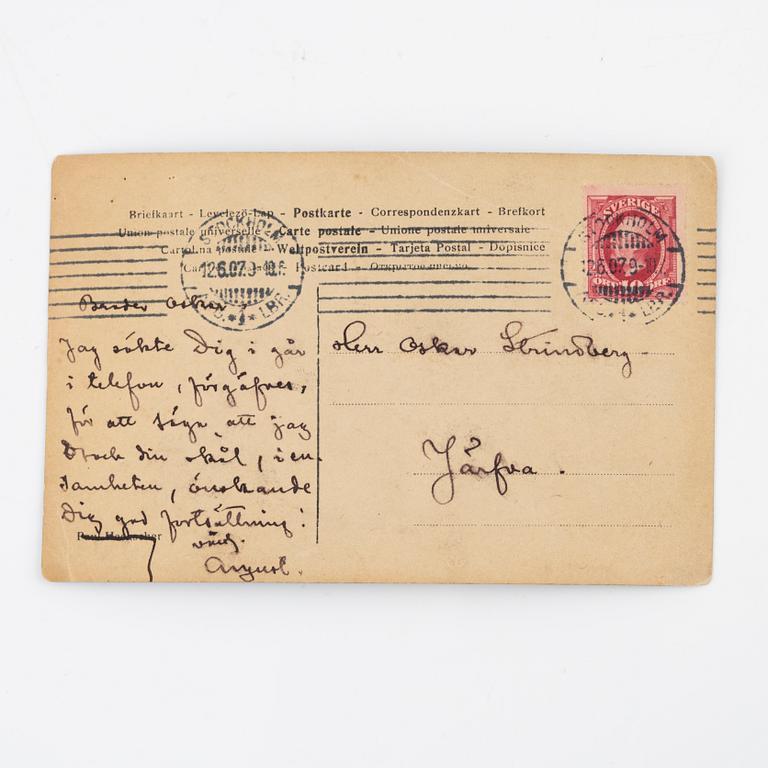 Briefkaart - Levelezö-Lap - Postkarte - Correspondenzkart - Brefkort
Union postale universelle - Carte postale - Unione postale universale
Cartolina postale - Weltpostverein - Tarjeta Postal - Dopisnice
Postcard -
SVERIGE
10
STOCKHOLM
12.6.07.9-10.F
1
LBR.
STOCKHOLM
12.6.07.9-10
1
LBR.
Broder Oskar
Jag sökte Dig i går
i telefon, förgäfves,
för att säga att jag
Drack din skål, i en-
samheten, önskande
Dig god fortsättning!
August.
Herr Oskar Strindberg
Järfva.